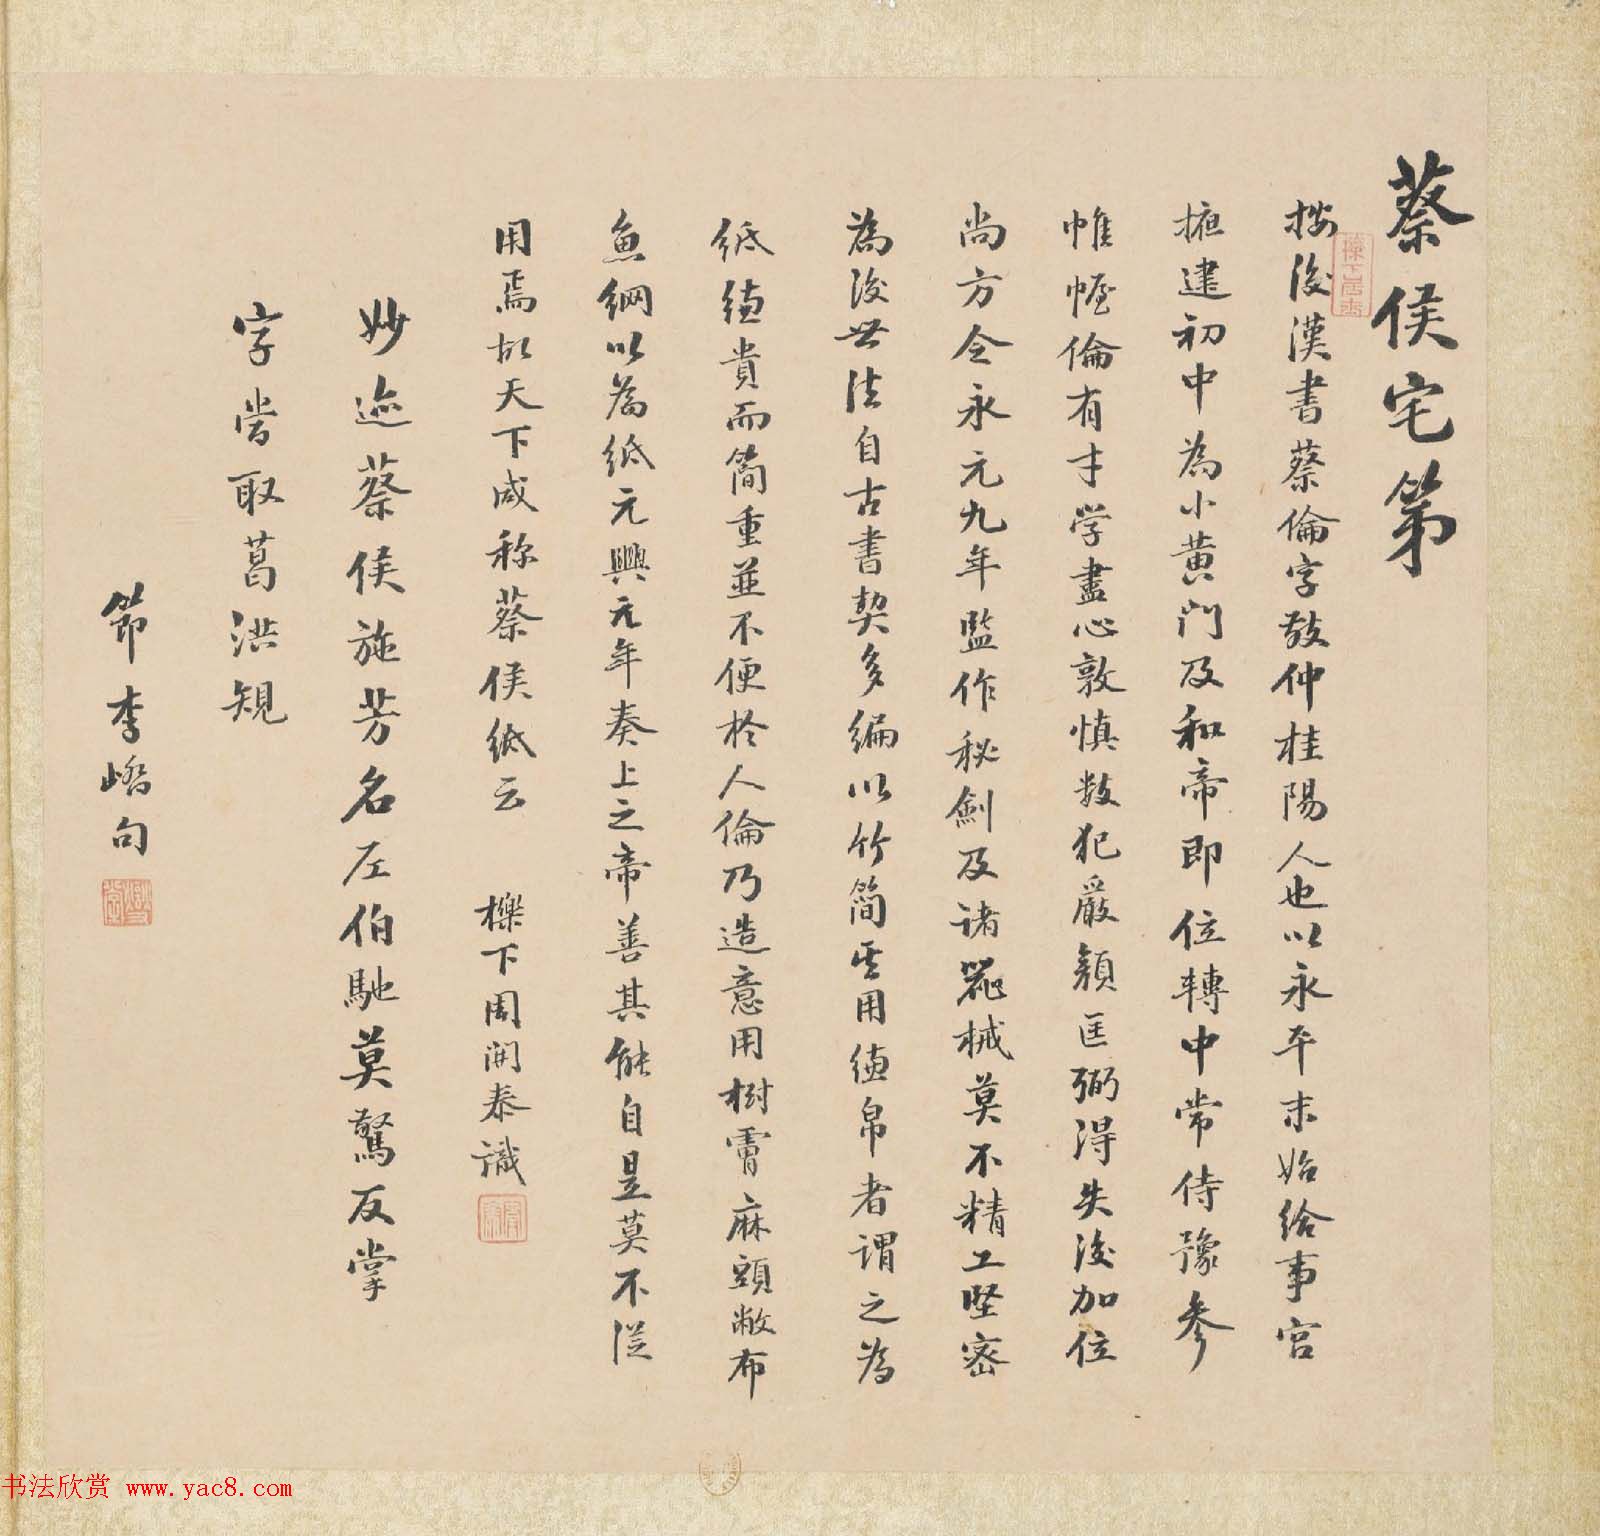 蔡侯宅第
按後漢書蔡倫字敬仲桂陽人也以永平末始給事宮
掖建初中為小黃門及和帝即位轉中常侍豫參
帷幄倫有才學盡心敦慎數犯嚴顏匡弼得失後加位
尚方令永元九年監作秘劍及諸器械莫不精工堅密
為後世法自古書契多編以竹簡其用縑帛者謂之為
紙縑貴而簡重並不便於人倫乃造意用樹膚麻頭敝布
魚網以為紙元興元年奏上之帝善其能自是莫不從
用焉故天下咸称蔡侯紙云 櫟下周開泰識
妙迹蔡侯施芳名左伯馳莫驚反掌
字嘗取葛洪規
節李嶠句
书法欣赏 www.yac8.com